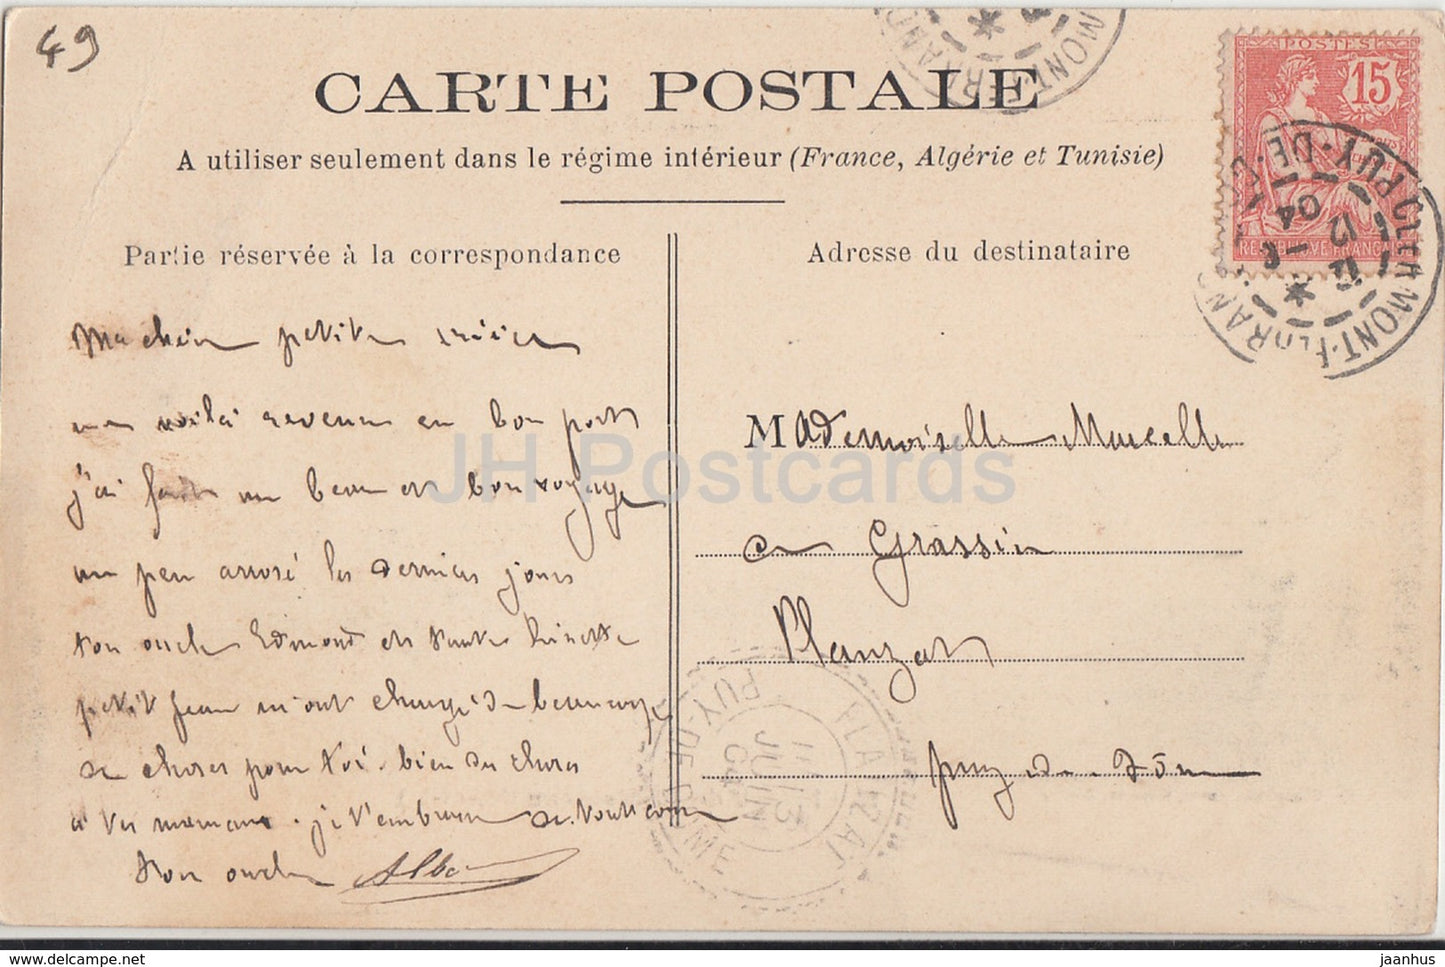 49
CARTE POSTALE
A utiliser seulement dans le régime intérieur (France, Algérie et Tunisie)
POSTES
15
REPUBLIQUE FRANÇAISE
CLERMONT-FERRAND
PUY-DE-
12
04
MONT-FERRAND
Partie réservée à la correspondance
Adresse du destinataire
Ma chère petite nièce
me voilà revenu en bon port
j'ai fait un beau et bon voyage
un peu arrosé les derniers jours
ton oncle Edmond et tante
petit Jean m'ont chargé de beaucoup
de choses pour toi. bien des choses
à tes mamans. je t'embrasse de tout cœur
ton oncle Albe
Mademoiselle Marcelle
en Grassin
Plauzat
puy de dôme
PLAUZAT
PUY-DE-DOME
13
JUIN
04
JH Postcards
delcampe.net
jaanhus